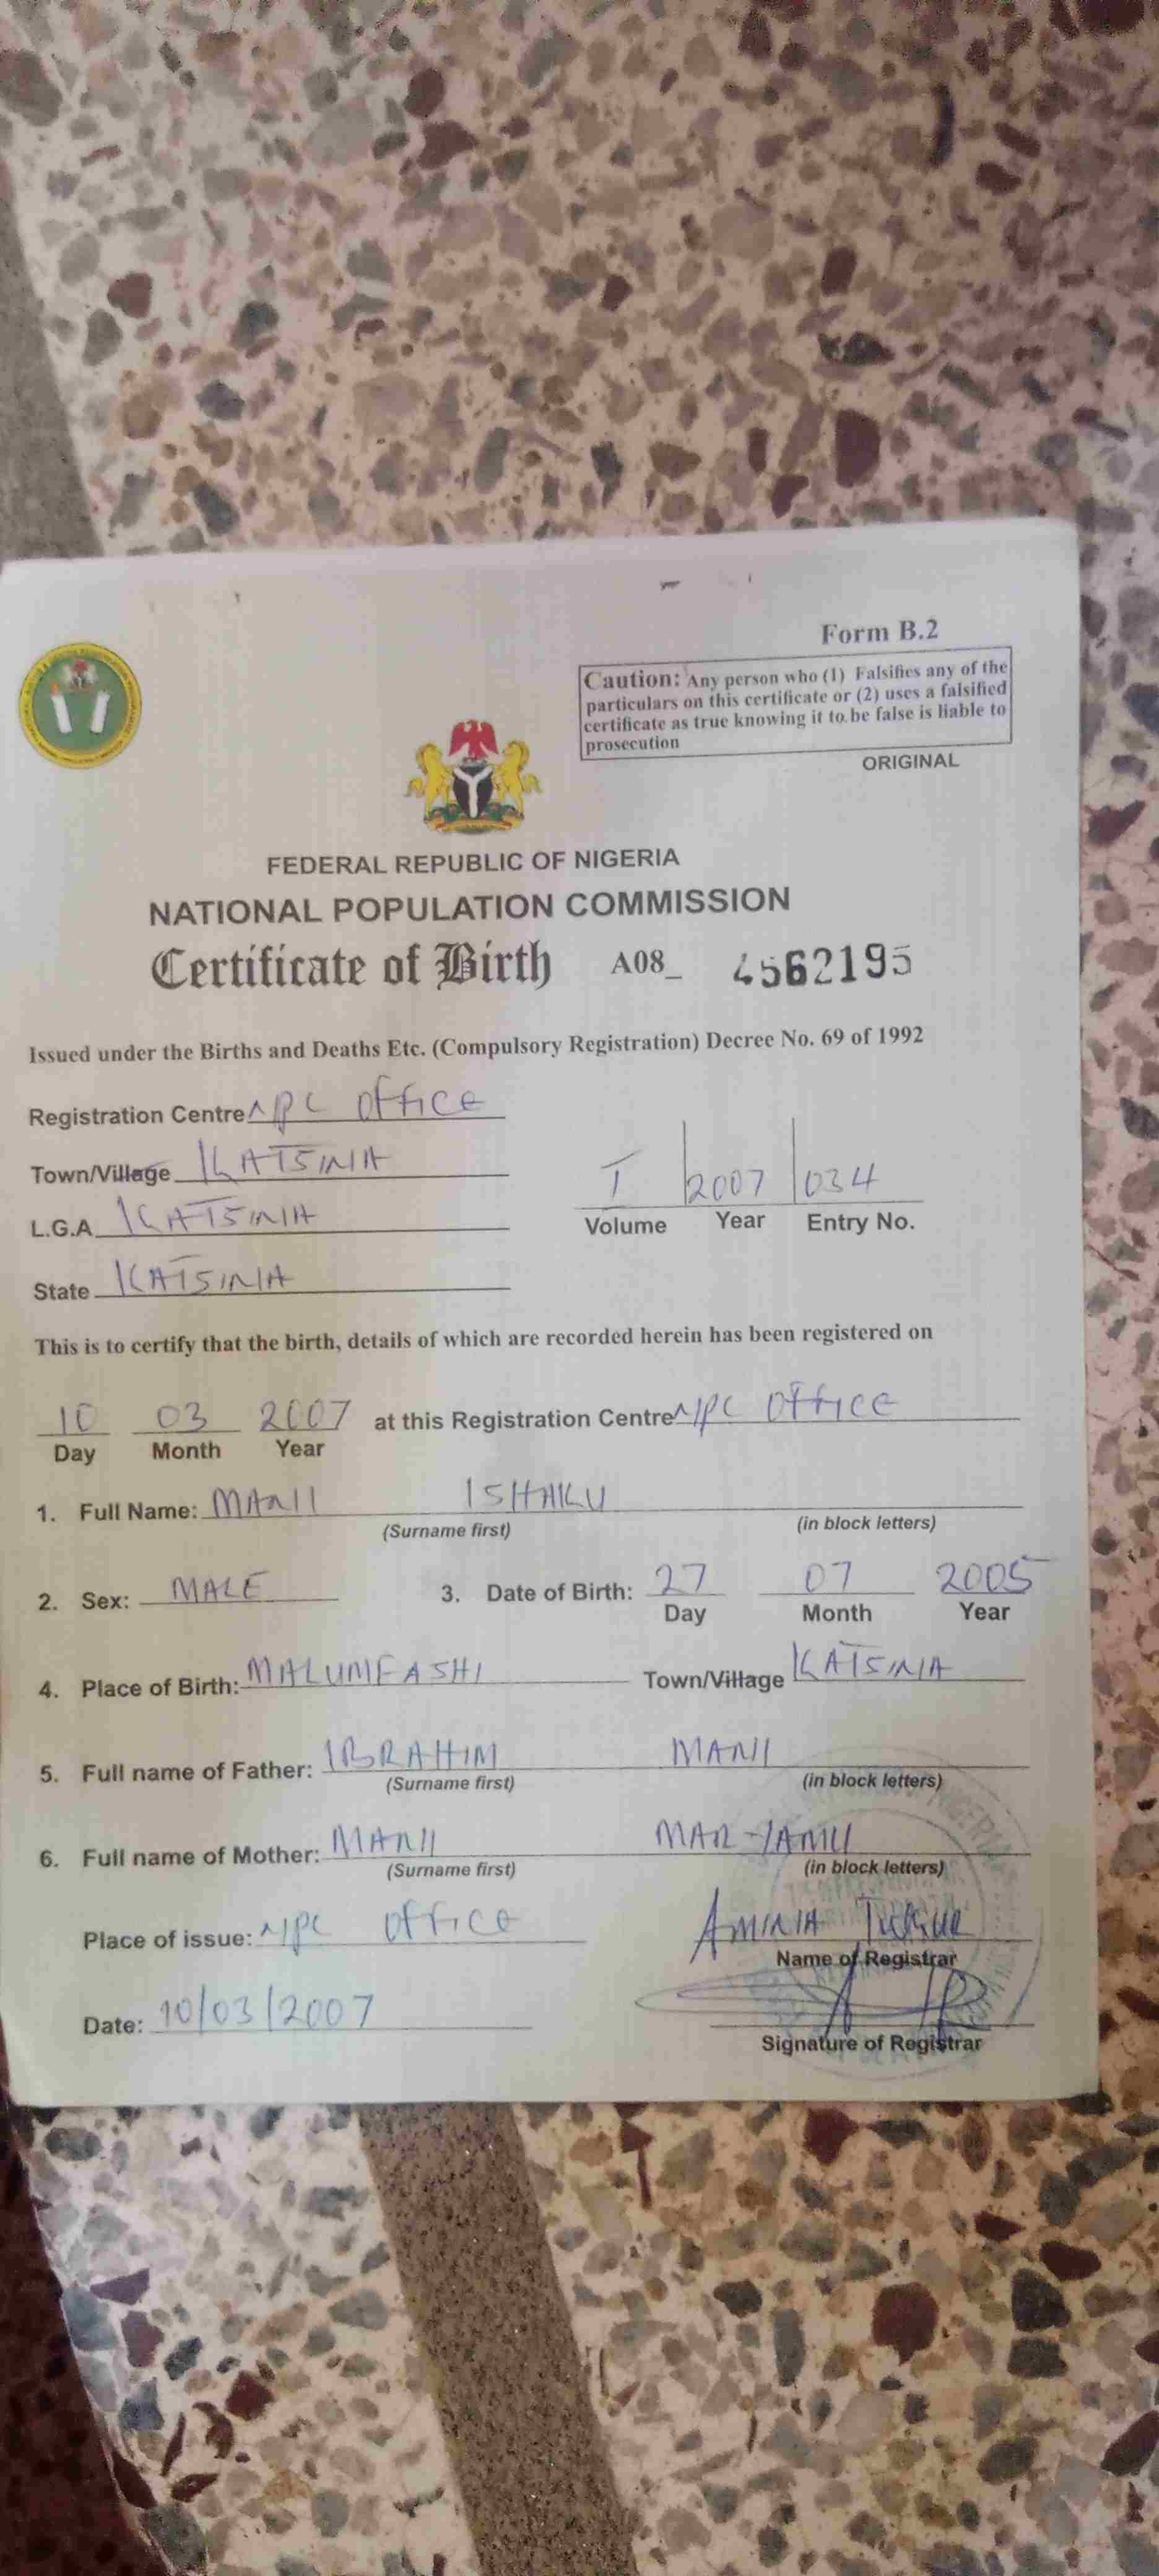 Form B.2
Caution: Any person who (1) Falsifies any of the
particulars on this certificate or (2) uses a falsified
certificate as true knowing it to be false is liable to
prosecution
ORIGINAL
FEDERAL REPUBLIC OF NIGERIA
NATIONAL POPULATION COMMISSION
Certificate of Birth A08_ 4562195
Issued under the Births and Deaths Etc. (Compulsory Registration) Decree No. 69 of 1992
Registration Centre NPC OFFICE
Town/Village KATSINA
L.G.A KATSINA
I 2007 034
Volume Year Entry No.
State KATSINA
This is to certify that the birth, details of which are recorded herein has been registered on
10 03 2007 at this Registration Centre NPC OFFICE
Day Month Year
1. Full Name: MANII ISHAKU
(Surname first) (in block letters)
2. Sex: MALE 3. Date of Birth: 27 07 2005
Day Month Year
4. Place of Birth: MALUMFASHI Town/Village KATSINA
5. Full name of Father: IBRAHIM MANII
(Surname first) (in block letters)
6. Full name of Mother: MANII MARYAMU
(Surname first) (in block letters)
Place of issue: NPC OFFICE
AMINA TUKUR
Name of Registrar
Date: 10/03/2007
Signature of Registrar